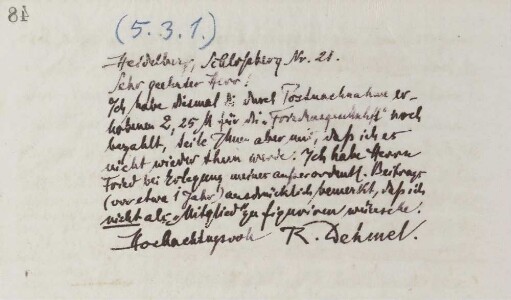 48
(5.3.1.)
Heidelberg, Schloßberg Nr. 21.
Sehr geehrter Herr!
Ich habe diesmal die durch Postnachnahme er-
hobenen 2,25 M für die „Friedensgesellschaft" noch
bezahlt, teile Ihnen aber mit, daß ich es
nicht wieder thun werde. Ich habe Herrn
Fried bei Erlegung meines außerordentl. Beitrags
(vor etwa 1 Jahr) ausdrücklich bemerkt, daß ich
nicht als „Mitglied" zu figuriren wünsche.
Hochachtungsvoll R. Dehmel.